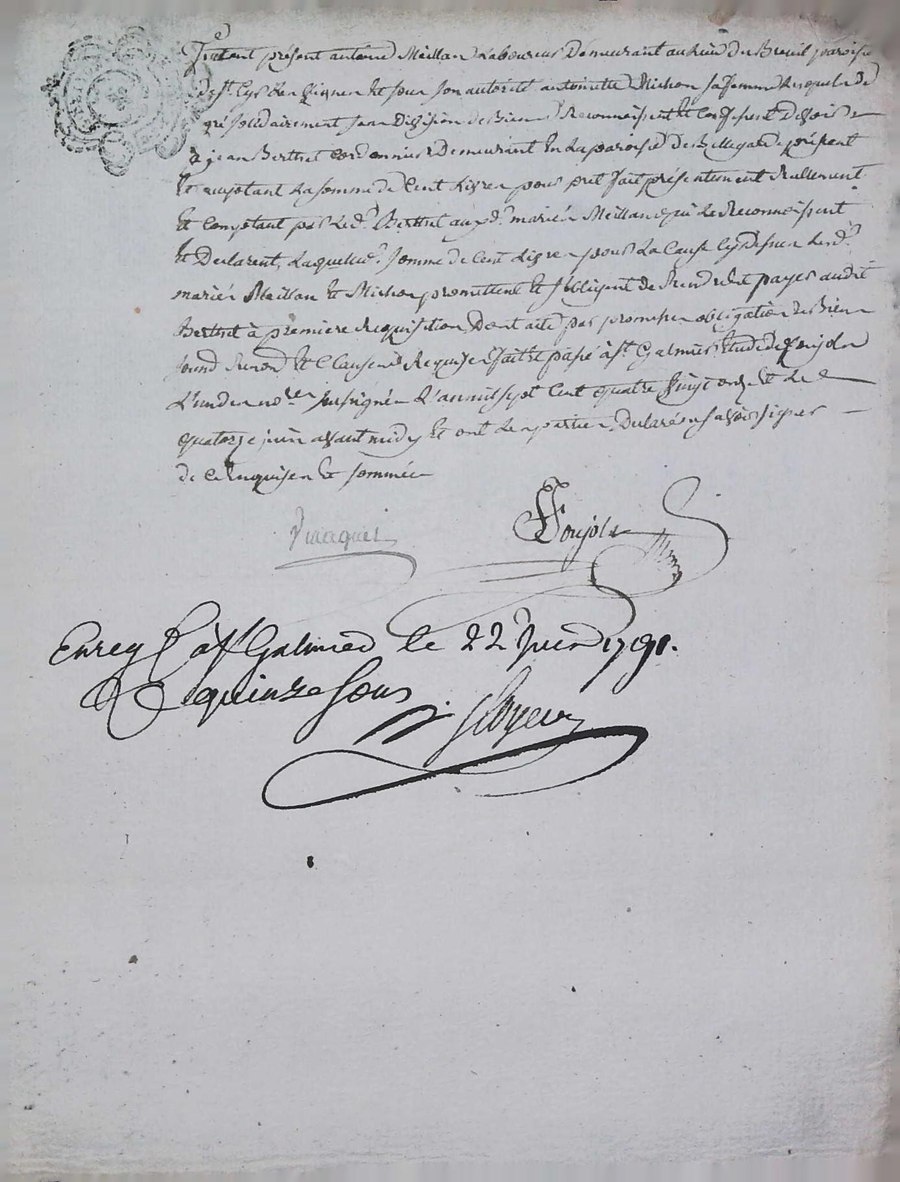 Furent présent antoine Meillan Laboureur Demeurant au Lieu du Breuil paroisse
de st. Cyr Les Vignes Et sous son autorité antoinette Michon sa femme Lesquels de
gré solidairement sans Division de Biens Reconnaissent Et Confessent devoir
à jean Berthet Cordonnier Demeurant En La paroisse de Bellegarde présent
Et acceptant La somme de Cent Livres pour prêt fait présentement Réellement
Et Comptant par Led. Berthet auxd. mariés Meillan qui Le Reconnoissent
Et Declarent, Laquelle somme de Cent Livres pour La Cause Cy dessus Lesd.
mariés Meillan Et Michon promettent Et s'obligent de Rendre Et payer audit
Berthet à première Requisition Dont acte par promesses obligation de Biens
soumd Renond Et Clauses Requises fait Et passé à st. Galmier Etude de Poujols
L'un des nores soussignés L'an mil sept Cent quatre Vingt onze Et Le
quatorze juin avant midy Et ont Les parties Declaré ne savoir signer
de Ce Enquises Et sommées
Poujols
Enreg à st Galmier le 22 Juin 1791.
R quinze Sous